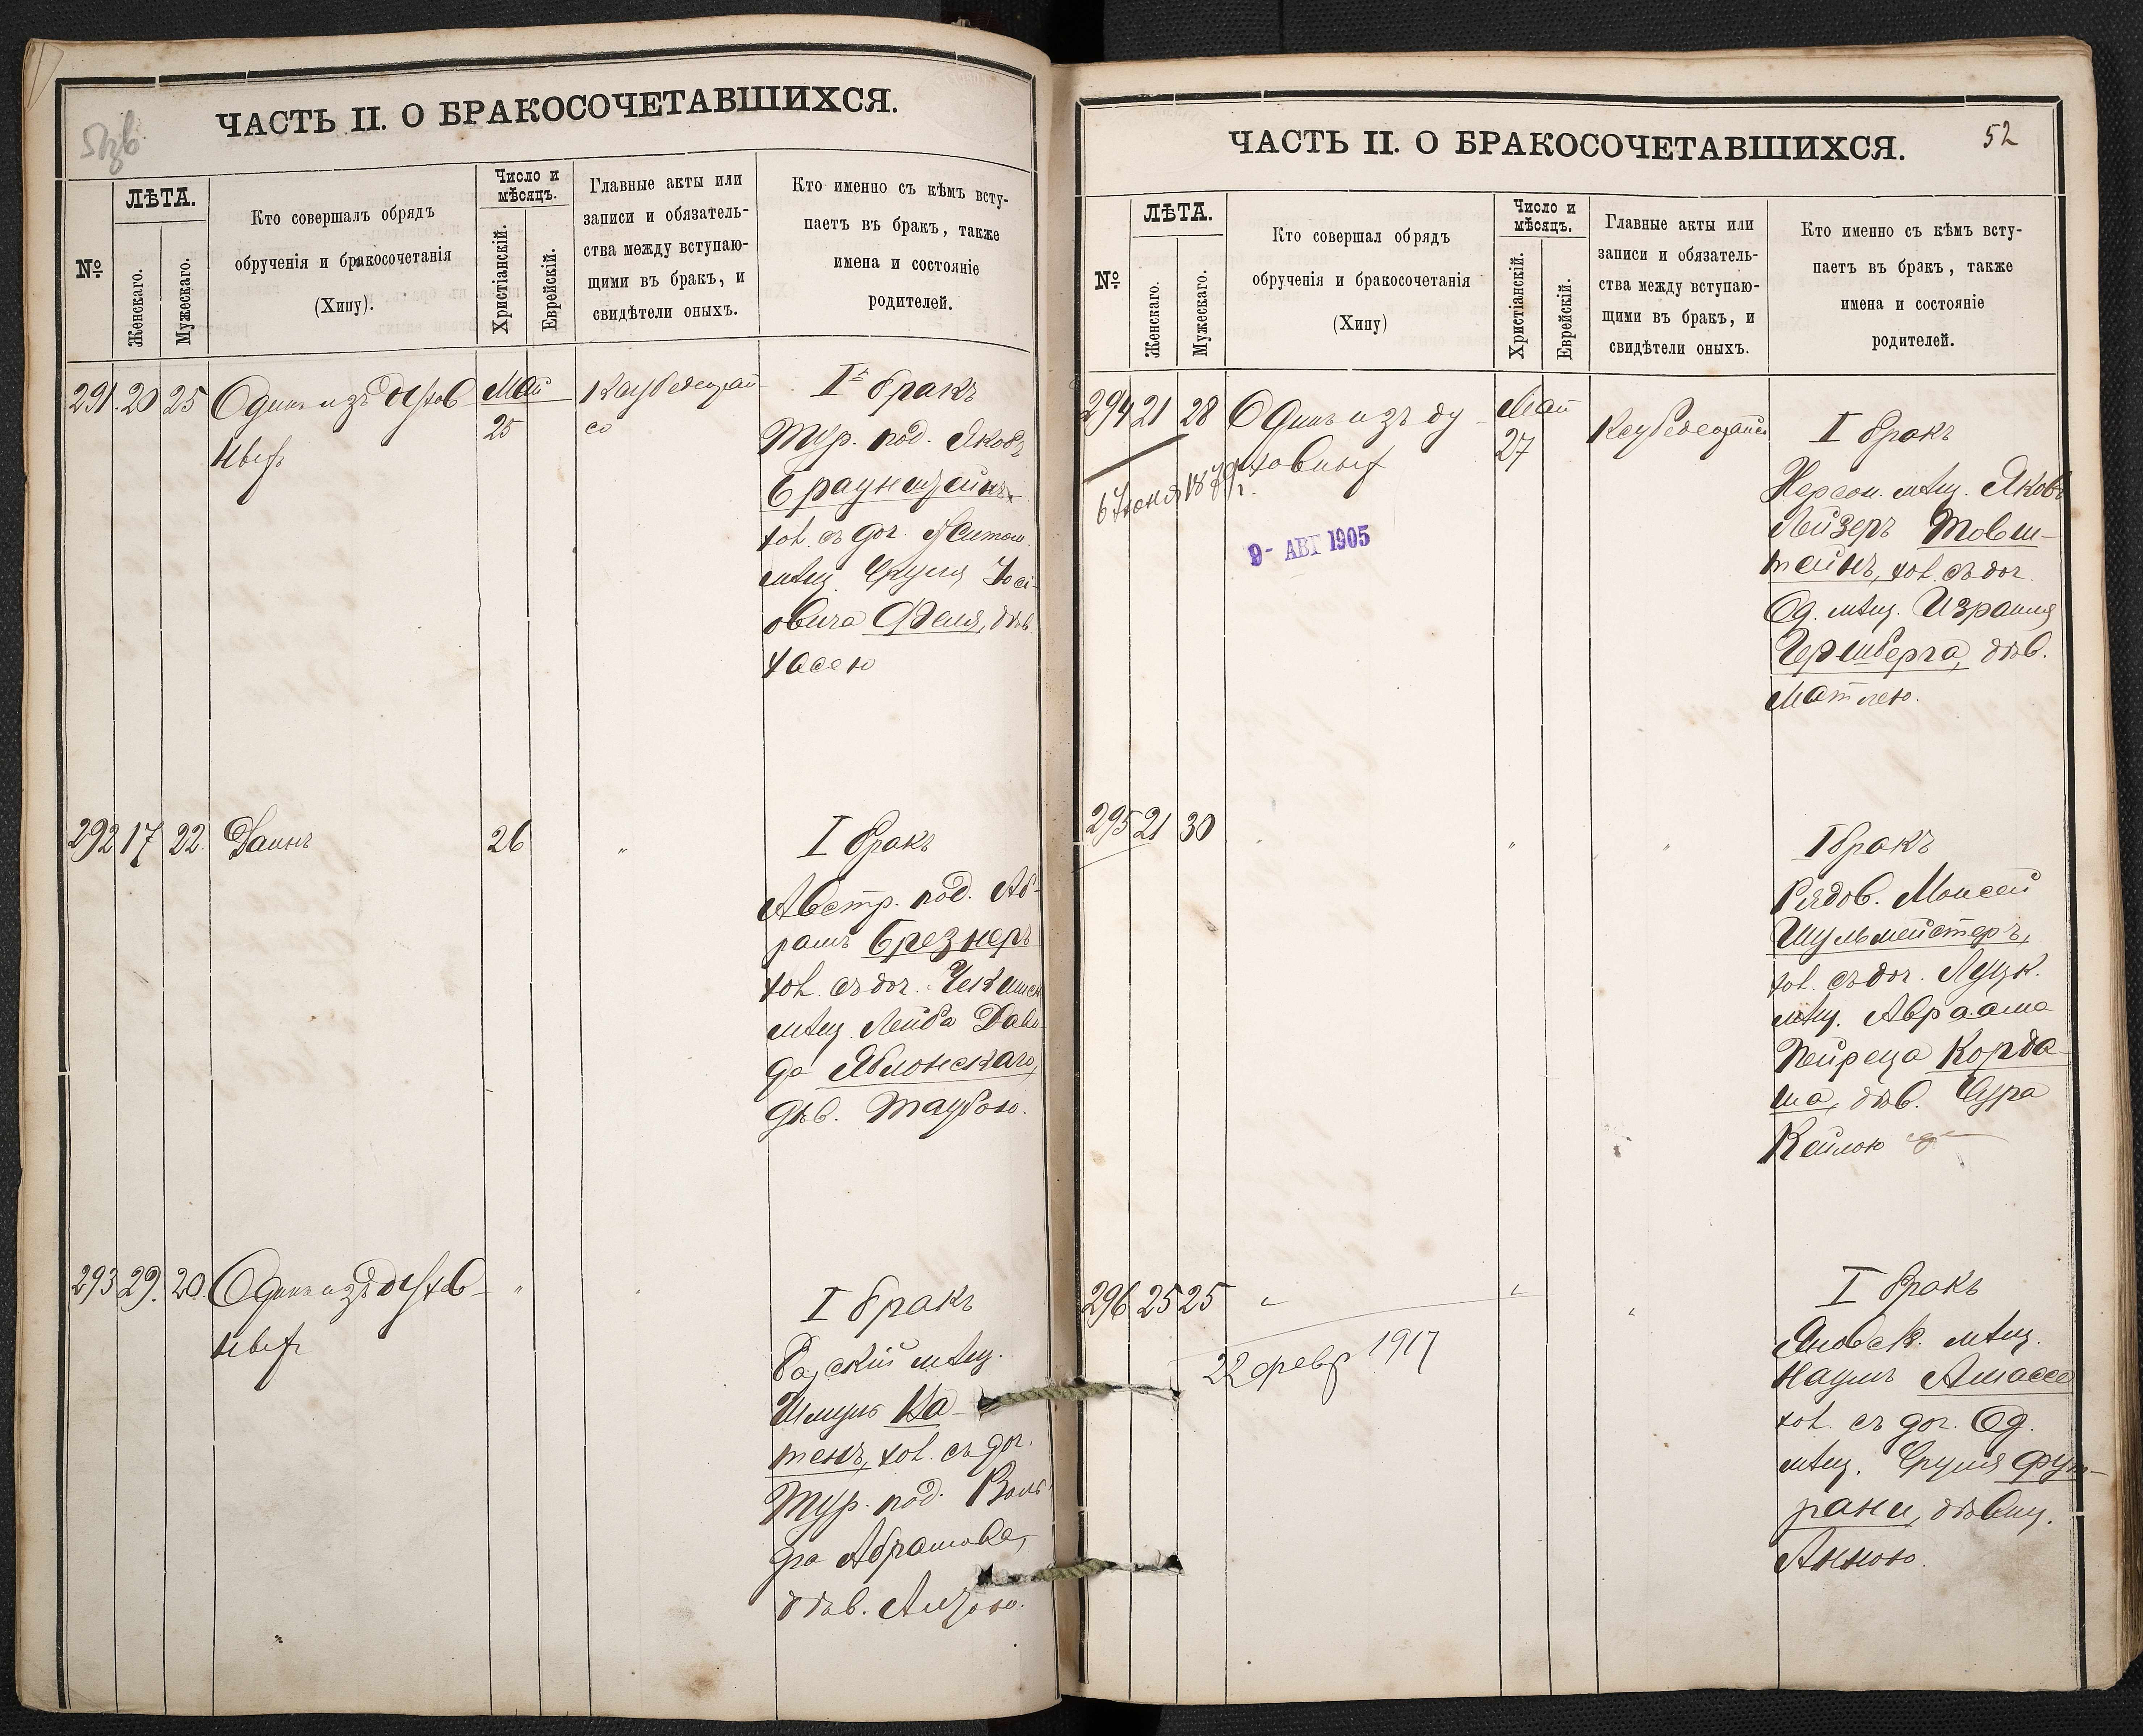 ЧАСТЬ II. О БРАКОСОЧЕТАВШИХСЯ.
№
ЛѢТА.
Женскаго.
Мужескаго.
Кто совершалъ обрядъ
обрученія и бракосочетанія
(Хипу).
Число и
мѣсяцъ.
Христіанскій.
Еврейскій.
Главные акты или
записи и обязатель-
ства между вступаю-
щими въ бракъ, и
свидѣтели оныхъ.
Кто именно съ кѣмъ всту-
паетъ въ бракъ, также
имена и состояніе
родителей.
291. 20 25 Одинъ изъ духов
ныхъ
Май
25
I бракъ
Тур. под. Яковъ
Браунштейнъ
хол. съ доч. Житом.
мѣщ. Сруля Іосі-
овича Фделя, дѣв.
Хасею
292 17 22. Даинъ
26
"
I бракъ
Австр. под. Аб-
рамъ Брезнеръ
хол. съ доч.
мѣщ. Лейба Дави-
да Яблонскаго,
дѣв. Таубою.
293 29. 20. Одинъ изъ духов-
ныхъ
"
"
I бракъ
мѣщ.
Шмуль Ка-
тенъ, хол. съ доч.
Тур. под.
Абрамова,
дѣв.
ЧАСТЬ II. О БРАКОСОЧЕТАВШИХСЯ.
52
№
ЛѢТА.
Женскаго.
Мужескаго.
Кто совершал обрядъ
обрученія и бракосочетанія
(Хипу)
Число и
мѣсяцъ.
Христіанскій.
Еврейскій.
Главные акты или
записи и обязатель-
ства между вступаю-
щими въ бракъ, и
свидѣтели оныхъ.
Кто именно съ кѣмъ всту-
паетъ въ бракъ, также
имена и состояніе
родителей.
294 21 28 Одинъ изъ ду-
ховныхъ
Май
27
6 Іюня 1879 г.
9- АВГ 1905
I бракъ
Херсон. мѣщ. Яковъ
Лейзеръ Товш-
тейнъ, хол. съ доч.
Од. мѣщ. Израиля
Гершберга, дѣв.
Матлею.
295 21 30
"
"
"
I бракъ
Рядов. Моисей
Шульмейстеръ,
хол. съ доч. Луцк.
мѣщ. Авраама
Пейреца Корда-
ша, дѣв. Сура
Кейлою
296 25 25 "
"
"
22 февр 1917
I бракъ
Яновск. мѣщ.
Наумъ Амасее
хол. съ доч. Од.
мѣщ. Сруля Фут-
рани, дѣвиц.
Анною.